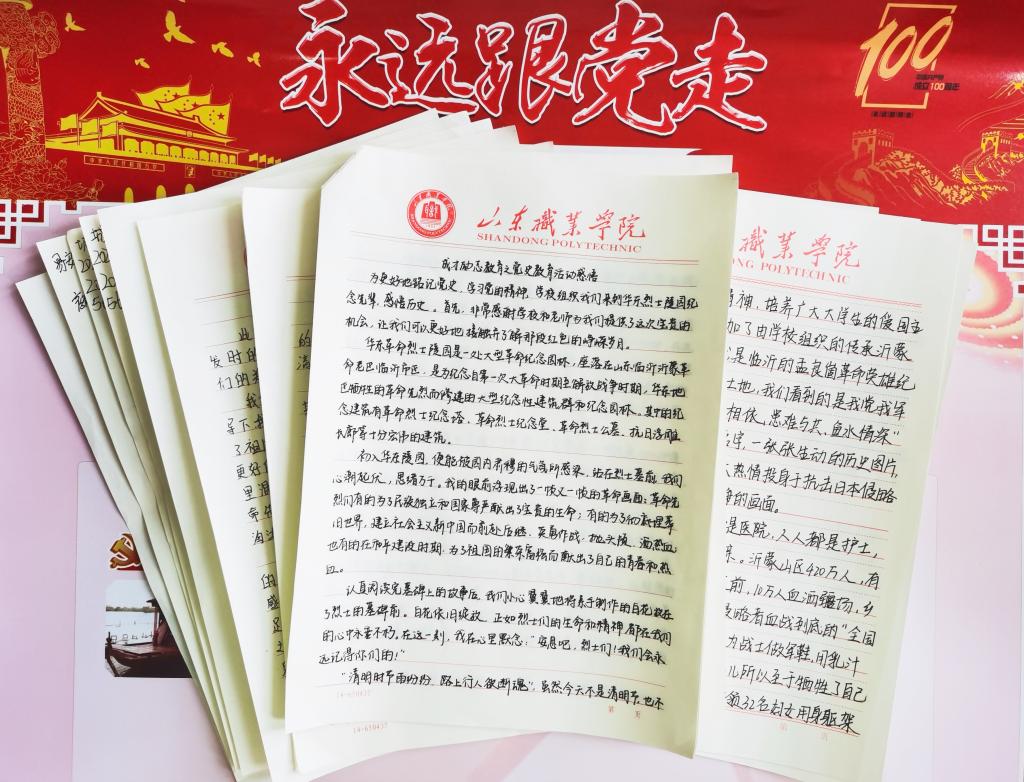 永远跟党走
100
中国共产党
成立100周年
山东职业学院
SHANDONG POLYTECHNIC
成才励志教育之党史教育活动感悟
为更好地铭记党史，学习党的精神，学校组织我们来到华东烈士陵园纪
念先辈，感悟历史。首先，非常感谢学校和老师为我们提供了这次宝贵的
机会，让我们可以更好地接触并了解那段红色的峥嵘岁月。
华东革命烈士陵园是一处大型革命纪念园林，座落在山东临沂沂蒙革
命老区临沂市区，是为纪念自第一次大革命时期至解放战争时期，华东地
区牺牲的革命先烈而修建的大型纪念性建筑群和纪念园林。其中的纪
念建筑有革命烈士纪念塔、革命烈士纪念堂、革命烈士公墓、抗日浮雕
长廊等十分宏伟的建筑。
初入华东陵园，便能被园内肃穆的气氛所感染，站在烈士墓前，我们
心潮起伏，思绪万千。我的眼前浮现出了一帧又一帧的革命画面：革命先
烈们有的为了民族独立和国家尊严献出了宝贵的生命；有的为了彻底埋葬
旧世界，建立社会主义新中国而前赴后继，英勇作战，抛头颅，洒热血
也有的在和平建设时期，为了祖国的繁荣富强而献出了自己的青春和热
血。
认真阅读完墓碑上的故事后，我们小心翼翼地将亲手制作的白花放在
了烈士的墓碑前。白花依旧绽放，正如烈士们的生命和精神，都在我们
的心中永垂不朽。在这一刻，我在心里默念：“安息吧，烈士们！我们会永
远记得你们的！”
“清明时节雨纷纷，路上行人欲断魂”，虽然今天不是清明节，也不
14-650437
第 页
14-650437
职业学院
NG POLYTECHNIC
精神，培养广大大学生的爱国主
加了由学校组织的传承沂蒙
是临沂的孟良崮革命英雄纪
土地，我们看到的是我党我军
相依、患难与共、鱼水情深”
一张张生动的历史图片，
热情投身于抗击日本侵略
争的画面。
是医院，人人都是护士，
沂蒙山区420万人，有
前，10万人血洒疆场，乡
血战到底的“全国
为战士做军鞋，用乳汁
儿所以至于牺牲了自己
领32名妇女用身躯架
第 页